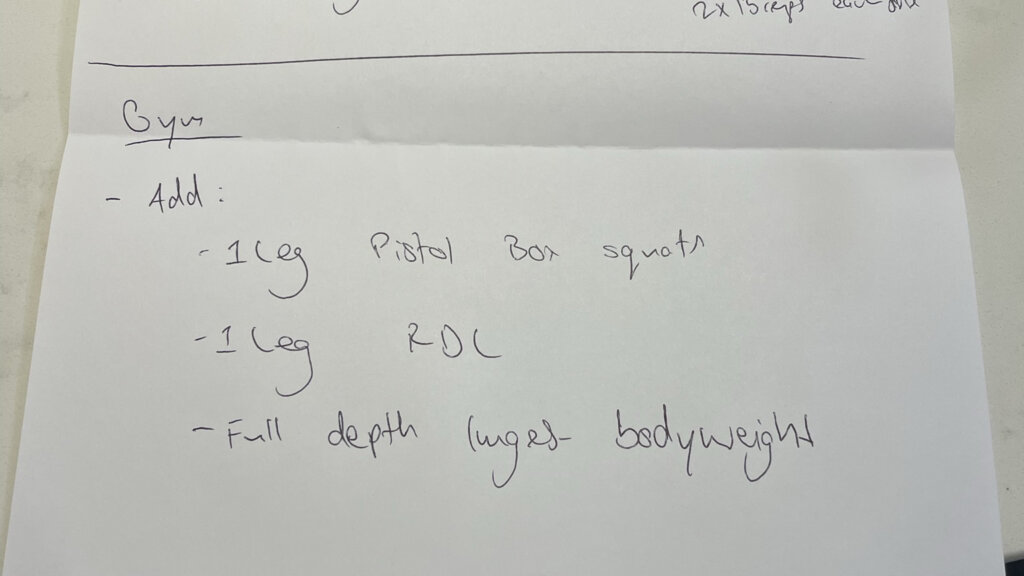 2x15 reps each
Gym
- Add :
- 1 Leg Pistol Box squats
- 1 Leg RDL
- Full depth lunges - bodyweight